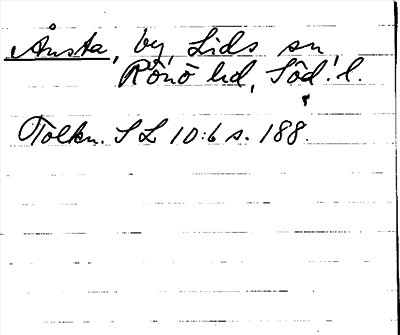 Ånsta, by, Lids sn,
Rönö hd, Söd.l.
Tolkn. SL 10:6 s. 188.